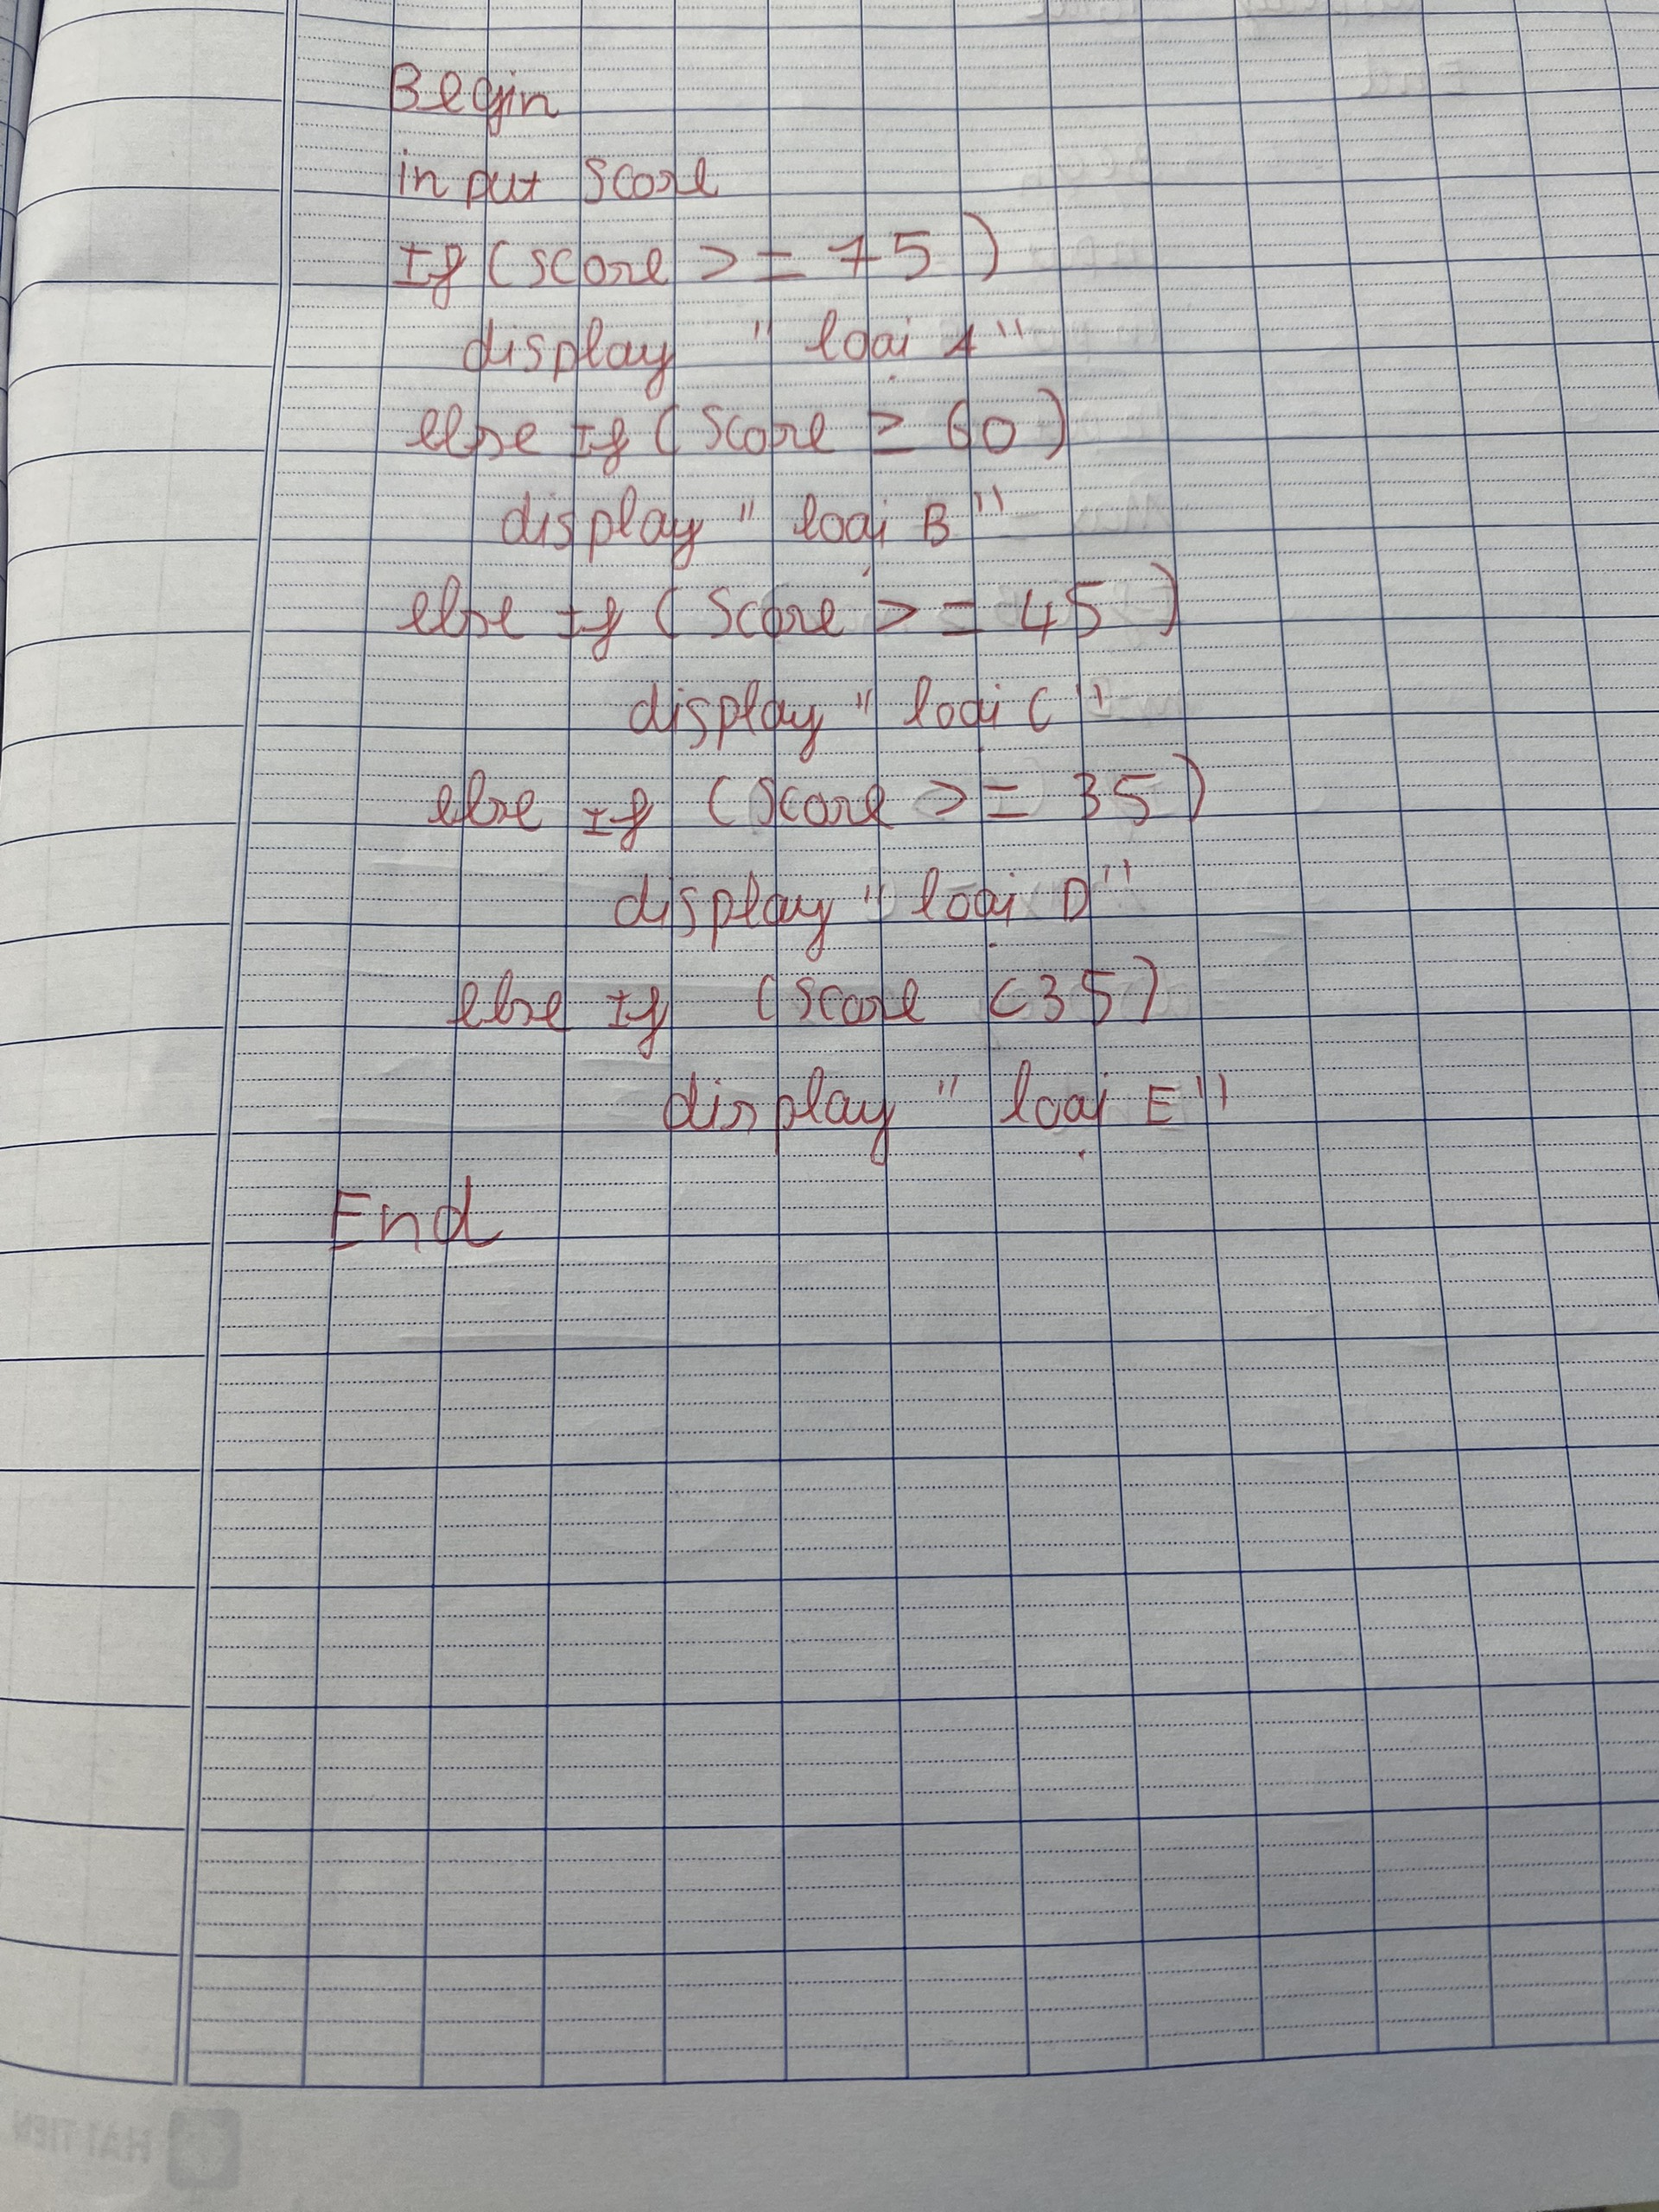 Begin
input Score
If (Score >= 75)
display " loại A"
else If (Score ≥ 60)
display " loại B"
else If (Score >= 45)
display " loại C"
else If (Score >= 35)
display " loại D"
else If (Score < 35)
display " loại E"
End